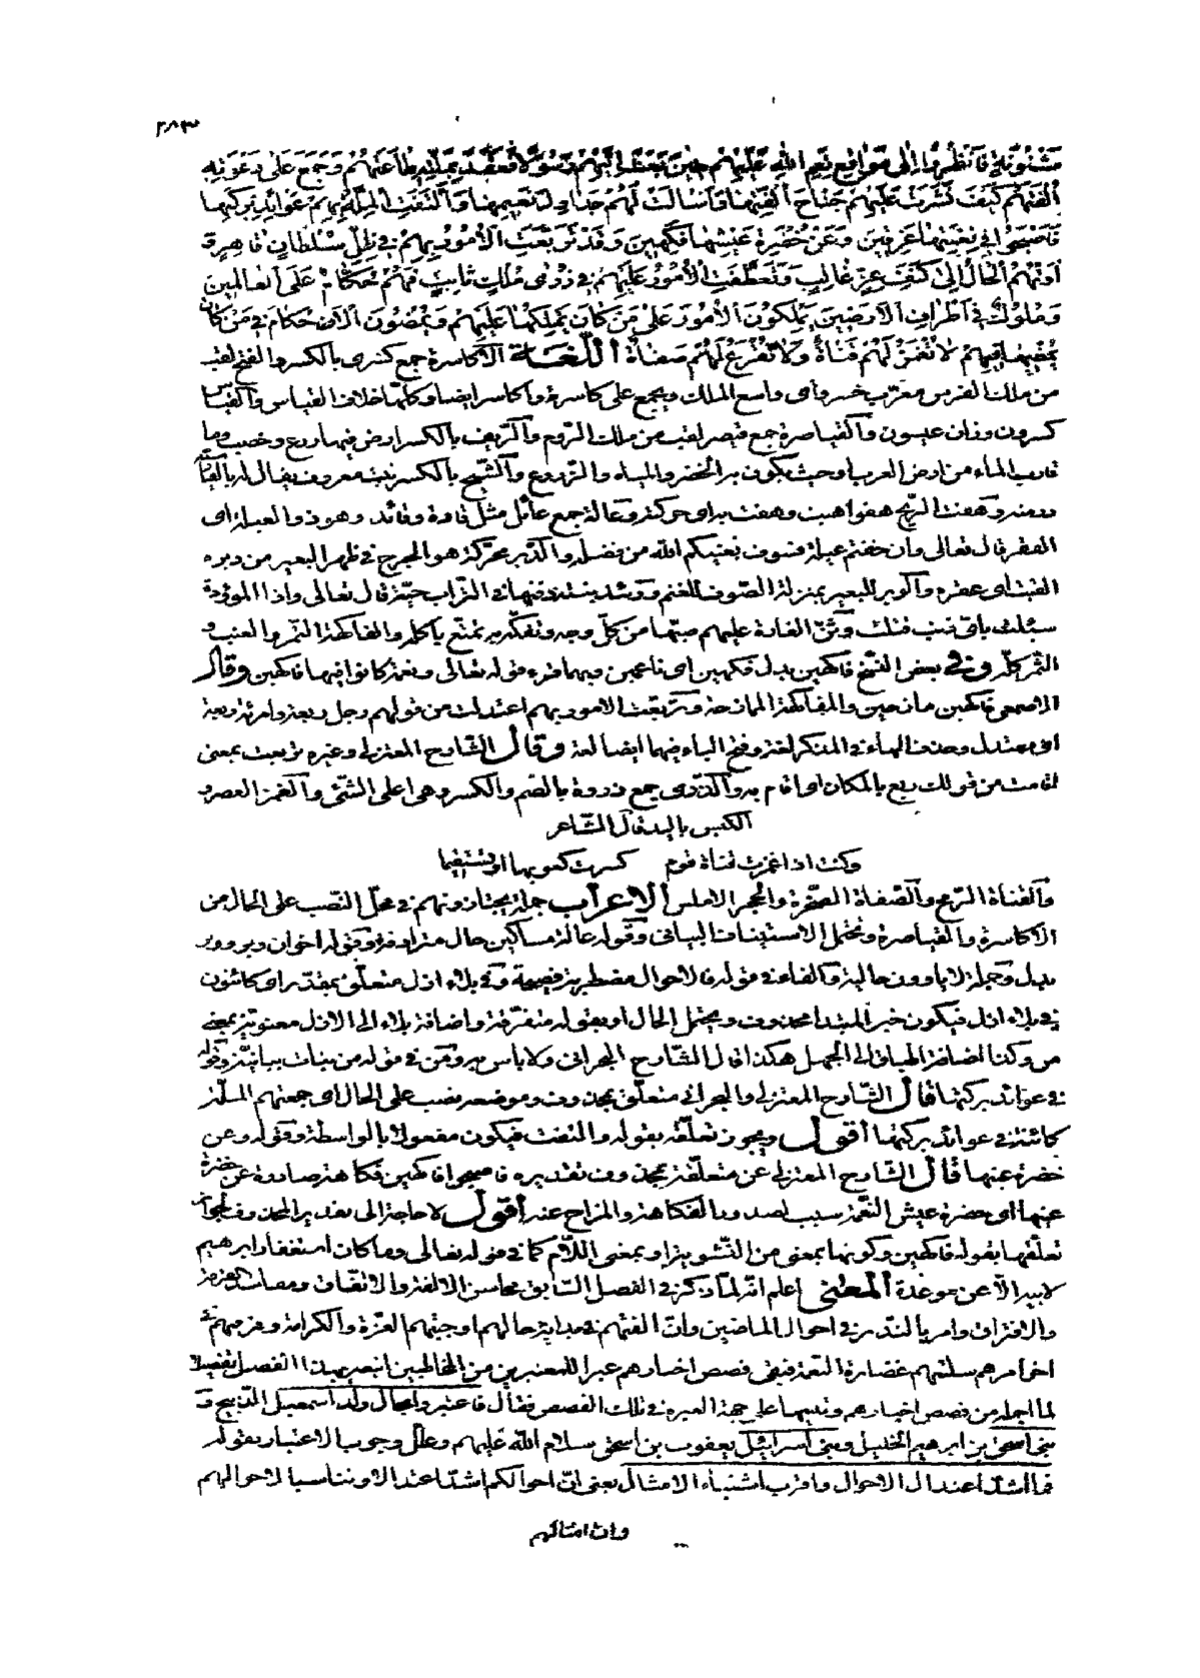 ٢٨٣
مَشْنُونَةٍ فَانْظُرُوا إِلى مَوَاقِعِ نِعَمِ اللهِ عَلَيْهِمْ حِينَ بَعَثَ إِلَيْهِمْ رَسُولاً فَعَقَدَ بِمِلَّتِهِ طَاعَتَهُمْ وَجَمَعَ عَلى دَعْوَتِهِ
أُلْفَتَهُمْ كَيْفَ نَشَرَتِ عَلَيْهِمْ جَنَاحَ أُلْفَتِهَا فَأَسَالَتْ لَهُمْ جَدَاوِلَ نَعِيمِهَا وَالْتَفَّتِ الْمِلَّةُ بِهِمْ عَوَائِدِ بَرَكَتِهَا
فَأَصْبَحُوا فِي نِعْمَتِهَا غَرِقِينَ وَعَنْ خُضْرَةِ عَيْشِهَا فَكِهِينَ وَقَدْ تَرَبَّعَتِ الْأُمُورُ بِهِمْ فِي ظِلِّ سُلْطَانٍ قَاهِرٍ وَ
اوَتْهُمُ الْحَالُ إِلى كَنَفِ عِزٍّ غَالِبٍ وَتَعَطَّفَتِ الْأُمُورُ عَلَيْهِمْ فِي ذُرى مُلْكٍ ثَابِتٍ فَهُمْ حُكَّامٌ عَلَى الْعَالَمِينَ
وَمُلُوكٌ فِي أَطْرَافِ الْأَرَضِينَ يَمْلِكُونَ الْأُمُورَ عَلى مَنْ كَانَ يَمْلِكُهَا عَلَيْهِمْ وَيُمْضُونَ الْأَحْكَامَ فِي مَنْ كَانَ
يُمْضِيهَا فِيهِمْ لا تُغْمَزُ لَهُمْ قَنَاةٌ وَلا تُقْرَعُ لَهُمْ صَفَاةٌ اللّغة الاكاسرة جمع كسرى بالكسر والفتح لقب
من ملك الفرس معرّب خسرو اى واسع الملك ويجمع على كاسرة واكاسر ايضا وكلّها خلاف القياس والقياس
كسرون وزان عيسون والقياصرة جمع قيصر لقب من ملك الرّوم والرّيف بالكسر ارض فيها زرع وخصب وما
قارب الماء من ارض العرب او حيث يكون به الخضر والمياه والزّروع والشّيح بالكسر نبت معروف يقال له بالفارسية
درمنه وهفت الرّيح هفوا هبّت وهفت به اى حركته وعالة جمع عائل مثل قادة وقائد وهو ذو العيلة اى
الفقر قال تعالى وان خفتم عيلة فسوف يغنيكم الله من فضله والدّبر محرّكة هو الجرح فى ظهر البعير من دبره
القتب اى عقره والوبر للبعير بمنزلة الصّوف للغنم ووئد بنته دفنها فى التّراب حيّة قال تعالى واذا الموؤدة
سئلت باىّ ذنب قتلت وشنّ الغارة عليهم صبّها من كلّ وجه وتفكّه به تمتّع باكله والفاكهة التّمر والعنب و
الثّمر كلّه وفى بعض النّسخ فاكهين بدل فكهين اى ناعمين وبهما قرء قوله تعالى ونعمة كانوا فيها فاكهين وقال
الاصمعى فاكهين مازحين والمفاكهة الممازحة وتربّعت الامور بهم اعتدلت من قولهم رجل ربعة وامرئة ربعة
اى معتدل وحذف الهاء فى المذكر لغة وفتح الباء فيهما ايضا لغة وقال الشّارح المعتزلى وغيره تربعت بمعنى
اقامت من قولك ربع بالمكان اى اقام به والذّرى جمع ذروة بالضّم والكسر وهى اعلى الشّىء والغمز العصر و
الكبس باليد قال الشّاعر
وكنت اذا غمزت قناة قوم كسرت كعوبها او تستقيما
والقناة الرّمح والصّفاة الصّخرة والحجر الاملس الاعراب جملة يحتازونهم فى محلّ النّصب على الحال من
الاكاسرة والقياصرة وتحتمل الاستيناف البيانى وقوله عالة مساكين حال مترادفة وقوله اخوان دبر ووبر
بدل وجملة لا ياوون حالية والفاء فى قوله فالاحوال مضطربة فصيحة وفى بلاء ازل متعلّق بمقدّر اى كائنون
فى بلاء ازل فيكون خبر المبتدا محذوف ويحتمل الحال او بقوله متفرّقة واضافة بلاء الى الازل معنوية بمعنى
من وكذا اضافة اطباق الى الجهل هكذا قال الشّارح البحرانى ولا باس به ومن فى قوله من بنات بيانيّة وقوله
فى عوائد بركتها قال الشّارح المعتزلى والبحرانى متعلّق بمحذوف وموضعه نصب على الحال اى جمعتهم الملّة
كائنة فى عوائد بركتها اقول ويجوز تعلّقه بقوله والتفّت فيكون مفعولا بالواسطة وقوله وعن
خضرة عيشها قال الشّارح المعتزلى عن متعلّقة بمحذوف تقديره فاصبحوا فاكهين فكاهة صادرة عن خضرة
عيشها اى خضرة عيش النّعمة سبب لصدور الفكاهة والمزاح عنه اقول لا حاجة الى تقدير المحذوف لجواز
تعلّقها بقوله فاكهين وكونها بمعنى من النّشويّة او بمعنى اللّام كما فى قوله تعالى وما كان استغفار ابرهيم
لابيه الّا عن موعدة المعنى اعلم انّه لمّا ذكر فى الفصل السّابق محاسن الالفة والاتّفاق ومضارّ
والافتراق وامر بالتدبّر فى احوال الماضين وانّ الفتهم فى بداية حالهم اوجبتهم العزّة والكرامة
اخر امرهم سلبتهم غضارة النّعمة فبقى قصص اخبارهم عبرا للمعتبرين من المخاطبين اتبعه بهذا الفصل تفصيلا
لما اجمله من قصص اخبارهم وتنبيها على جهة العبرة فى تلك القصص فقال فاعتبروا بحال ولد اسمعيل الذّبيح و
بنى اسحق بن ابرهيم الخليل وبنى اسرائيل يعقوب بن اسحق سلام الله عليهم وعلّل وجوب الاعتبار بقوله
فما اشدّ اعتدال الاحوال واقرب اشتباه الامثال يعنى انّ احوالكم اشدّ اعتدالا وتناسبا لاحوالهم
وانّ امثالهم